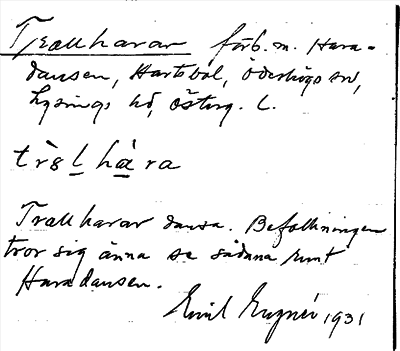 Trollharar förb. m. Hara-
dansen, Hartsböl, Öderhögs sn,
Lysings hd, Österg. L.
tròl hàra
Trollharar dansa. Befolkningen
tror sig ännu se sådana runt
Haradansen.
Emil 1931